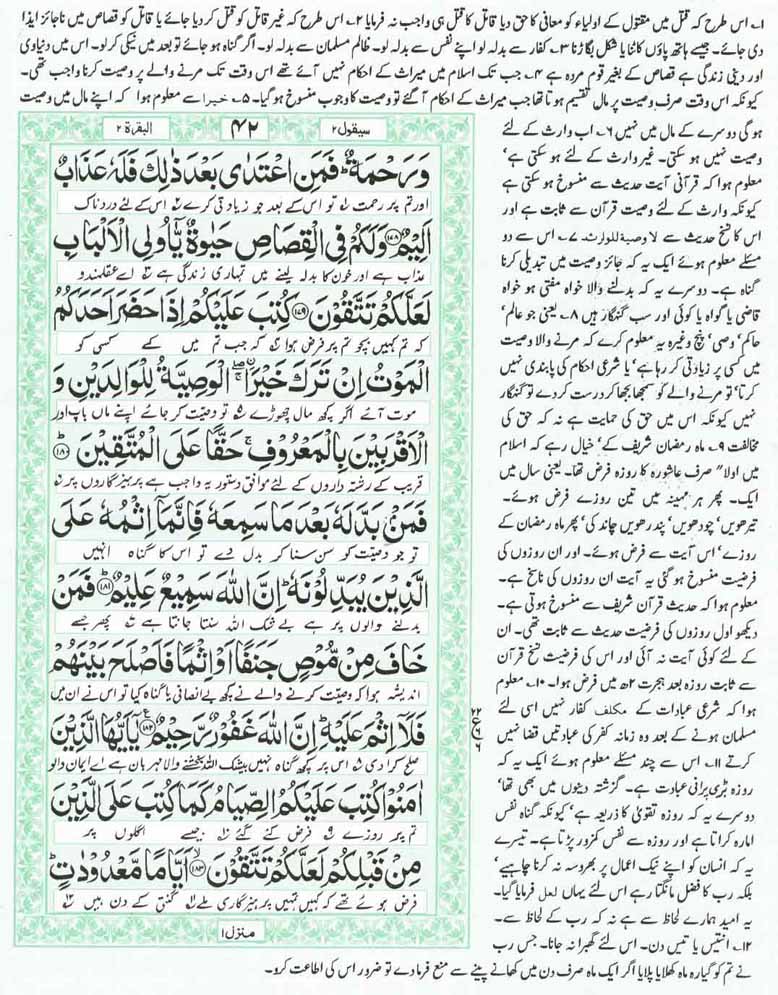 ۱۔ اس طرح کہ قتل میں مقتول کے اولیاء کو معافی کا حق دیا قاتل کا قتل ہی واجب نہ فرمایا ۲۔ اس طرح کہ غیر قاتل کو قتل کر دیا جائے یا قاتل کو قصاص میں ناجائز ایذا
دی جائے۔ جیسے ہاتھ پاؤں کاٹنا یا شکل بگاڑنا ۳۔ کفار سے بدلہ لو اپنے نفس سے بدلہ لو۔ ظالم مسلمان سے بدلہ لو۔ اگر گناہ ہو جائے تو بعد میں نیکی کر لو۔ اس میں دنیاوی
اور دینی زندگی ہے قصاص کے بغیر قوم مردہ ہے ۴۔ جب تک اسلام میں میراث کے احکام نہیں آئے تھے اس وقت تک مرنے والے پر وصیت کرنا واجب تھی۔
کیونکہ اس وقت صرف وصیت پر مال تقسیم ہوتا تھا جب میراث کے احکام آگئے تو وصیت کا وجوب منسوخ ہو گیا۔ ۵۔ خیرا سے معلوم ہوا کہ اپنے مال میں وصیت
ہو گی دوسرے کے مال میں نہیں ۶۔ اب وارث کے لئے
وصیت نہیں ہو سکتی۔ غیر وارث کے لئے ہو سکتی ہے'
معلوم ہوا کہ قرآنی آیت حدیث سے منسوخ ہو سکتی ہے
کیونکہ وارث کے لئے وصیت قرآن سے ثابت ہے اور
اس کا نسخ حدیث سے لا وصیة للوارث ۷۔ اس سے دو
مسئلے معلوم ہوئے ایک یہ کہ جائز وصیت میں تبدیلی کرنا
گناہ ہے۔ دوسرے یہ کہ بدلنے والا خواہ مفتی ہو خواہ
قاضی یا گواہ یا کوئی اور سب گنہگار ہیں ۸۔ یعنی جو عالم'
حاکم' وصی' پنچ وغیرہ یہ معلوم کرے کہ مرنے والا وصیت
میں کسی پر زیادتی کر رہا ہے' یا شرعی احکام کی پابندی نہیں
کرتا' تو مرنے والے کو سمجھا بجھا کر درست کر دے تو گنہگار
نہیں کیونکہ اس میں حق کی حمایت ہے نہ کہ حق کی
مخالفت ۹۔ ماہ رمضان شریف کے' خیال رہے کہ اسلام
میں اولاً صرف عاشورہ کا روزہ فرض تھا۔ یعنی سال میں
ایک۔ پھر ہر مہینہ میں تین روزے فرض ہوئے۔
تیرھویں' چودھویں' پندرھویں چاند کی' پھر ماہ رمضان کے
روزے' اس آیت سے فرض ہوئے۔ اور ان روزوں کی
فرضیت منسوخ ہو گئی یہ آیت ان روزوں کی ناسخ ہے۔
معلوم ہوا کہ حدیث قرآن شریف سے منسوخ ہوتی ہے۔
دیکھو اول روزوں کی فرضیت حدیث سے ثابت تھی۔ ان
کے لئے کوئی آیت نہ آئی اور اس کی فرضیت نسخ قرآن
سے ثابت روزہ بعد ہجرت ۲ھ میں فرض ہوا۔ ۱۰۔ معلوم
ہوا کہ شرعی عبادات کے مکلف کفار نہیں اسی لئے
مسلمان ہونے کے بعد وہ زمانہ کفر کی عبادتیں قضا نہیں
کرتے ۱۱۔ اس سے چند مسئلے معلوم ہوئے ایک یہ کہ
روزہ بڑی پرانی عبادت ہے۔ گزشتہ دینوں میں بھی تھا'
دوسرے یہ کہ روزہ تقویٰ کا ذریعہ ہے' کیونکہ گناہ نفس
امارہ کراتا ہے اور روزہ سے نفس کمزور پڑتا ہے۔ تیسرے
یہ کہ انسان کو اپنے نیک اعمال پر بھروسہ نہ کرنا چاہیے'
بلکہ رب کا فضل مانگتا رہے اس لئے یہاں لعل فرمایا گیا۔
یہ امید ہمارے لحاظ سے ہے نہ کہ رب کے لحاظ سے۔
۱۲۔ انتیس یا تیس دن۔ اس لئے گھبرا نہ جانا۔ جس رب
نے تم کو گیارہ ماہ کھلایا پلایا اگر ایک ماہ صرف دن میں کھانے پینے سے منع فرما دے تو ضرور اس کی اطاعت کرو۔
سیقول ۲ ۴۲ البقرۃ ۲
وَرَحْمَةٌ ؕ فَمَنِ اعْتَدٰی بَعْدَ ذٰلِكَ فَلَهٗ عَذَابٌ
اور تم پر رحمت ۱ تو اس کے بعد جو زیادتی کرے ۲ اس کے لئے دردناک
اَلِیْمٌ ﴿۱۷۸﴾ وَلَكُمْ فِی الْقِصَاصِ حَیٰوةٌ یّٰۤاُولِی الْاَلْبَابِ
عذاب ہے اور خون کا بدلہ لینے میں تمہاری زندگی ہے ۳ اے عقلمندو
لَعَلَّكُمْ تَتَّقُوْنَ ﴿۱۷۹﴾ كُتِبَ عَلَیْكُمْ اِذَا حَضَرَ اَحَدَكُمُ
کہ تم کہیں بچو تم پر فرض ہوا ۴ کہ جب تم میں کسی کو
الْمَوْتُ اِنْ تَرَكَ خَیْرَا ۖۚ اۨلْوَصِیَّةُ لِلْوَالِدَیْنِ وَ
موت آئے اگر کچھ مال چھوڑے ۵ تو وصیت کر جائے اپنے ماں باپ اور
الْاَقْرَبِیْنَ بِالْمَعْرُوْفِ ۚ حَقًّا عَلَی الْمُتَّقِیْنَ ﴿۱۸۰﴾ؕ
قریب کے رشتہ داروں کے لئے موافق دستور یہ واجب ہے پرہیزگاروں پر ۶
فَمَنْۢ بَدَّلَهٗ بَعْدَ مَا سَمِعَهٗ فَاِنَّمَاۤ اِثْمُهٗ عَلَی
تو جو وصیت کو سن سنا کر بدل دے تو اس کا گناہ انہیں
الَّذِیْنَ یُبَدِّلُوْنَهٗ ؕ اِنَّ اللّٰهَ سَمِیْعٌ عَلِیْمٌ ﴿۱۸۱﴾ؕ فَمَنْ
بدلنے والوں پر ہے بے شک اللہ سنتا جانتا ہے ۷ پھر جسے
خَافَ مِنْ مُّوْصٍ جَنَفًا اَوْ اِثْمًا فَاَصْلَحَ بَیْنَهُمْ
اندیشہ ہوا کہ وصیت کرنے والے نے کچھ بے انصافی یا گناہ کیا تو اس نے ان میں
فَلَاۤ اِثْمَ عَلَیْهِ ؕ اِنَّ اللّٰهَ غَفُوْرٌ رَّحِیْمٌ ﴿۱۸۲﴾ یٰۤاَیُّهَا الَّذِیْنَ
صلح کرا دی ۸ اس پر کچھ گناہ نہیں بیشک اللہ بخشنے والا مہربان ہے اے ایمان والو
اٰمَنُوْا كُتِبَ عَلَیْكُمُ الصِّیَامُ كَمَا كُتِبَ عَلَی الَّذِیْنَ
تم پر روزے ۹ فرض کئے گئے ۱۰ جیسے اگلوں پر
مِنْ قَبْلِكُمْ لَعَلَّكُمْ تَتَّقُوْنَ ﴿۱۸۳﴾ۙ اَیَّامًا مَّعْدُوْدٰتٍ ؕ
فرض ہوئے تھے کہ کہیں تمہیں پرہیزگاری ملے ۱۱ گنتی کے دن ہیں ۱۲
منزل ۱
۲۲
ع
۶